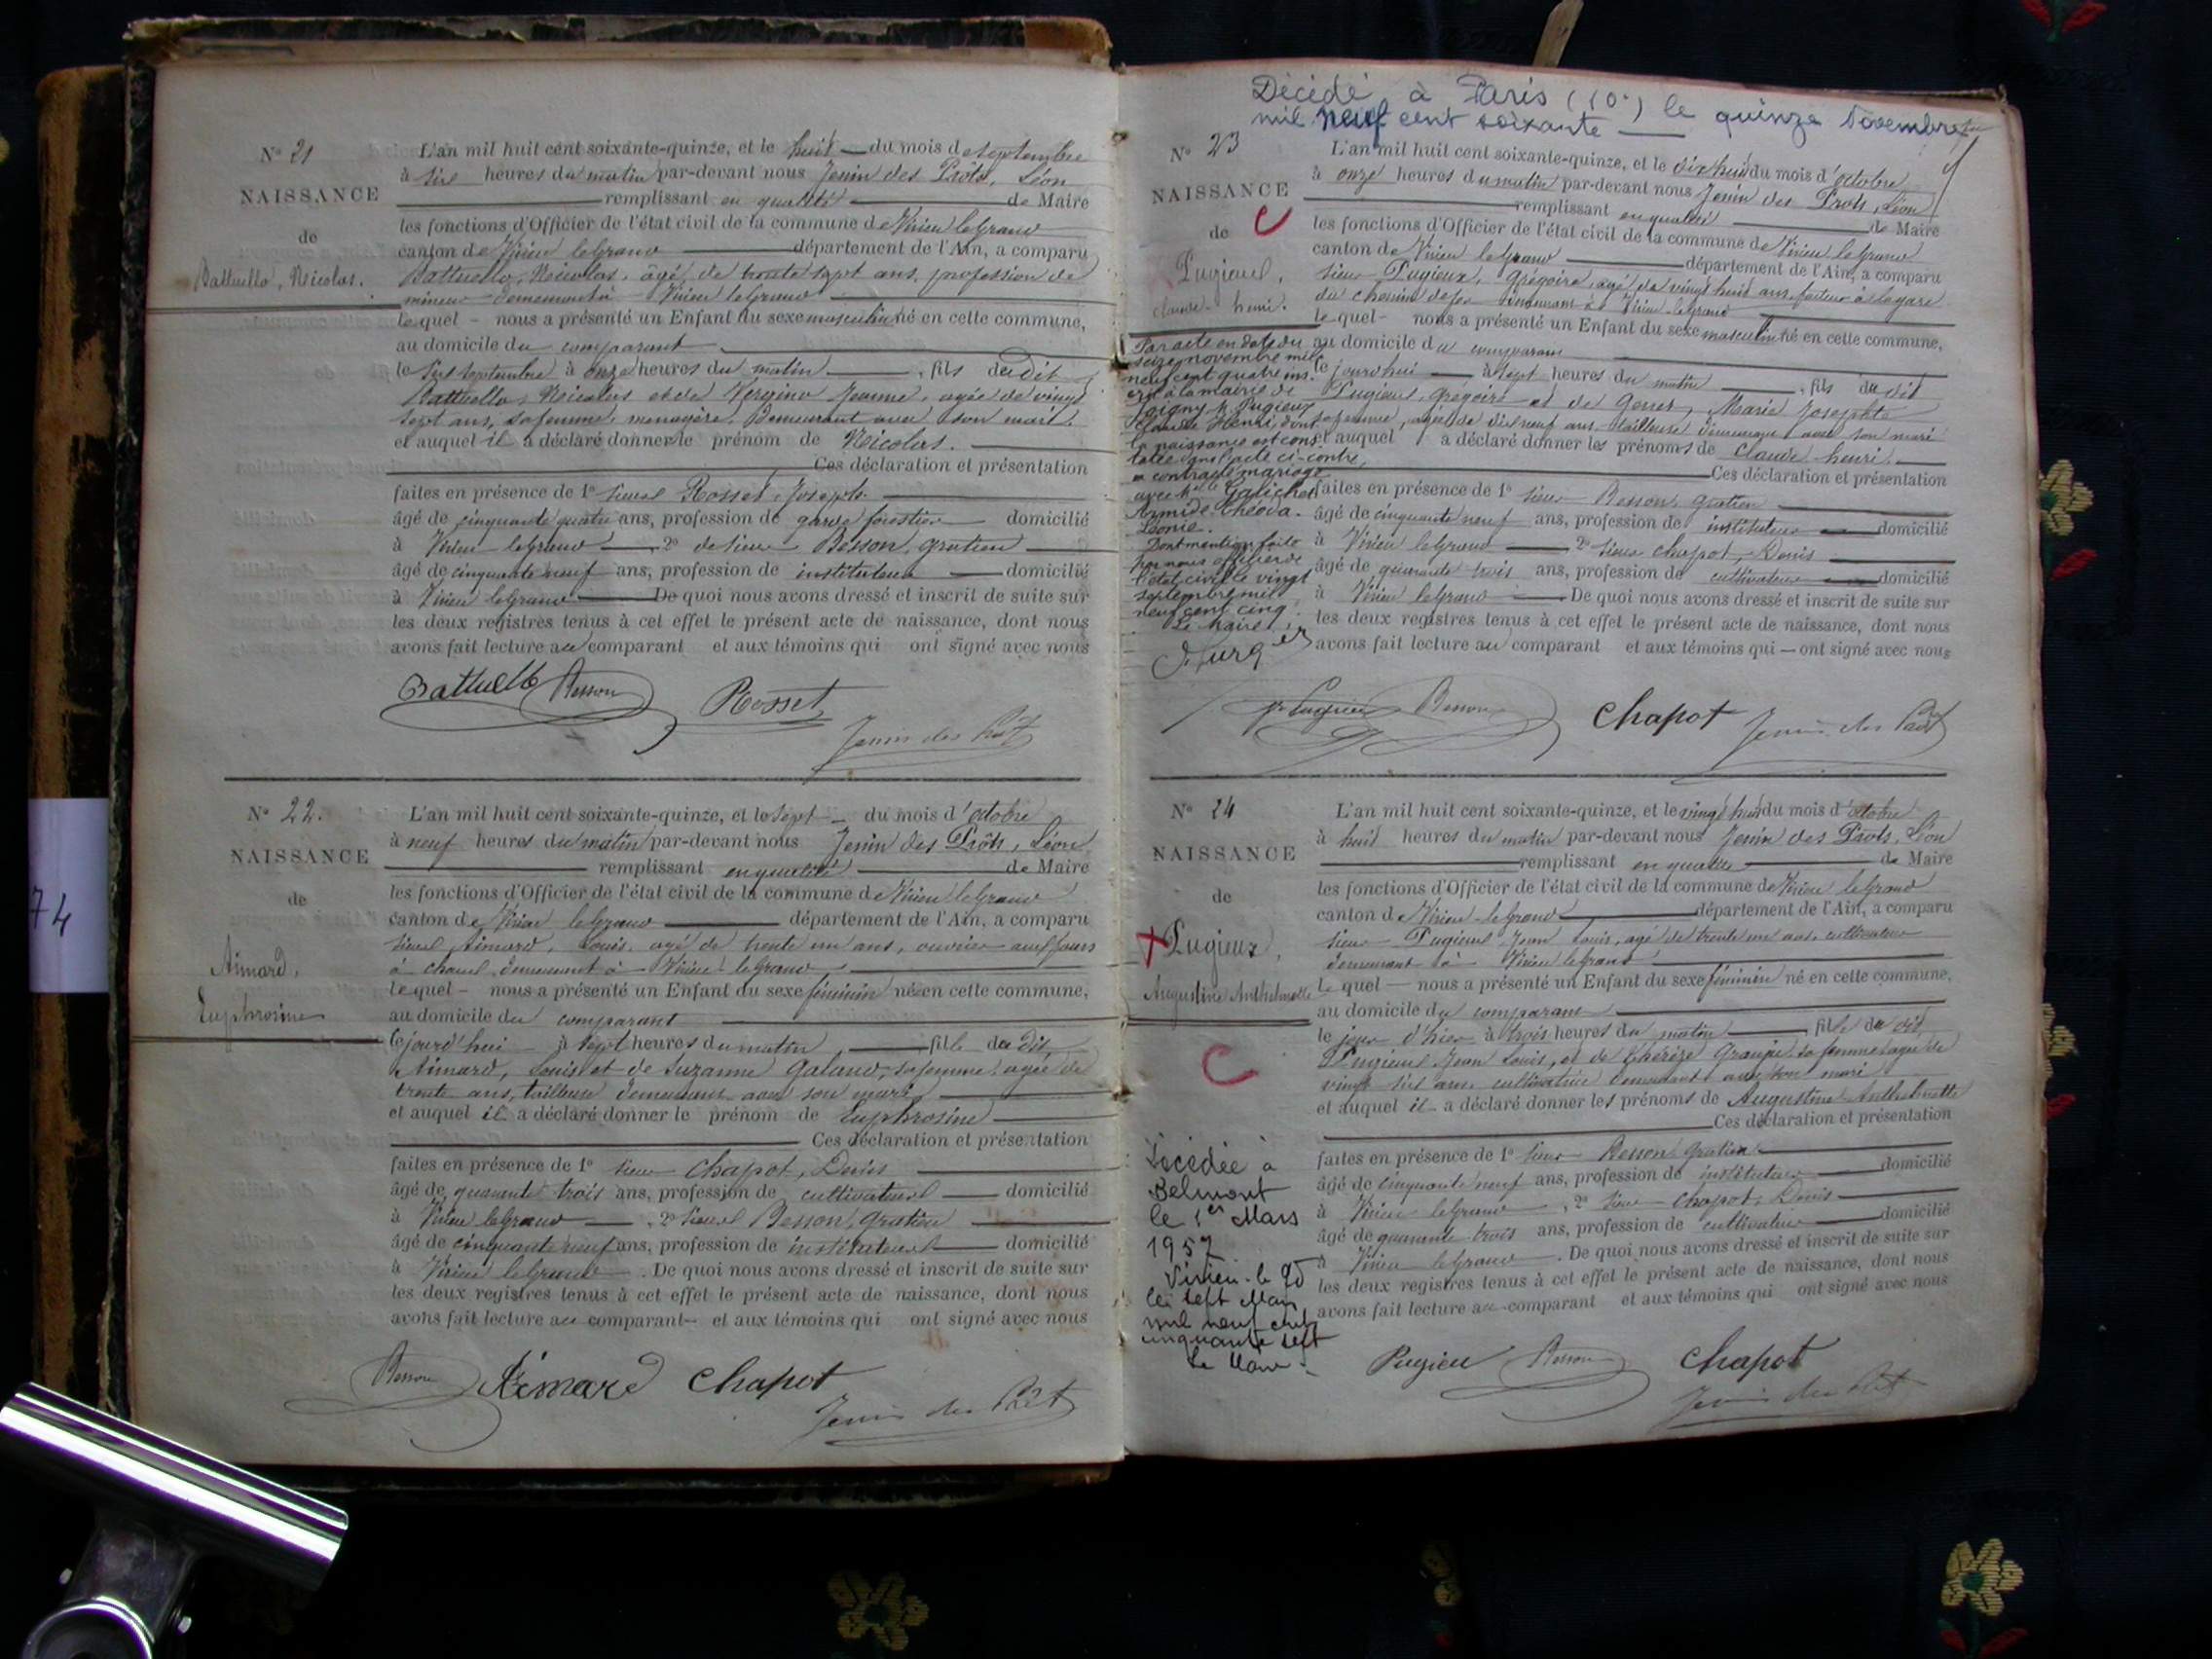 N° 21
NAISSANCE
de
Battuello, Neicolas.
L'an mil huit cent soixante-quinze, et le huit du mois de septembre
à six heures du matin par-devant nous Jenin des Prôts, Léon
remplissant en qualité de Maire
les fonctions d'Officier de l'état civil de la commune de Virieu legrand
canton de Virieu legrand département de l'Ain, a comparu
Battuello, Neicolas, âgé de trente sept ans, profession de
mineur demeurant à Virieu legrand
lequel - nous a présenté un Enfant du sexe masculin né en cette commune,
au domicile du comparant
le six septembre à onze heures du matin, fils du dit
Battuello, Neicolas et de Vereino Jeanne, agée de vingt
sept ans, sa femme, menagère, demeurant avec son mari.
et auquel il a déclaré donner le prénom de Neicolas.
Ces déclaration et présentation
faites en présence de 1° sieur Rosset, Joseph
âgé de cinquante quatre ans, profession de garde forestier domicilié
à Virieu legrand, 2° de sieur Besson, gratien
âgé de cinquante neuf ans, profession de instituteur domicilié
à Virieu legrand De quoi nous avons dressé et inscrit de suite sur
les deux registres tenus à cet effet le présent acte de naissance, dont nous
avons fait lecture au comparant et aux témoins qui ont signé avec nous
Battuello Besson Rosset
Jenin des Prôt
N° 22.
NAISSANCE
de
Aimard,
Euphrosine
L'an mil huit cent soixante-quinze, et le sept du mois d'octobre
à neuf heures du matin par-devant nous Jenin des Prôts, Léon
remplissant en qualité de Maire
les fonctions d'Officier de l'état civil de la commune de Virieu legrand
canton de Virieu legrand département de l'Ain, a comparu
sieur Aimard, Louis, agé de trente un ans, ouvrier aux fours
à chaux, demeurant à Virieu legrand
lequel - nous a présenté un Enfant du sexe féminin né en cette commune,
au domicile du comparant
cejourd'hui à sept heures du matin, fille du dit,
Aimard, Louis et de Suzanne Galand, sa femme, agée de
trente ans, tailleuse demeurant avec son mari
et auquel il a déclaré donner le prénom de Euphrosine
Ces déclaration et présentation
faites en présence de 1° sieur Chapot, Denis
âgé de quarante trois ans, profession de cultivateur domicilié
à Virieu legrand, 2° sieur Besson, gratien
âgé de cinquante neuf ans, profession de instituteur domicilié
à Virieu legrand. De quoi nous avons dressé et inscrit de suite sur
les deux registres tenus à cet effet le présent acte de naissance, dont nous
avons fait lecture au comparant et aux témoins qui ont signé avec nous
Besson Aimard Chapot
Jenin des Prôt
74
Décédé à Paris (10e) le quinze Novembre
mil neuf cent soixante
N° 23
NAISSANCE
de
Pugieux,
claude-henri.
Par acte en date du
seize novembre mil
neuf cent quatre ins-
crit à la mairie de
Joigny Mr Pugieux
Claude Henri, dont
la naissance est cons-
tatée dans l'acte ci-contre,
a contracté mariage
avec Melle Galichet
Armide Théoda
Léonie.
Dont mention faite
par nous officier de
l'état civil le vingt
septembre mil
neuf cent cinq.
Le Maire,
L'an mil huit cent soixante-quinze, et le dix huit du mois d'octobre
à onze heures du matin par-devant nous Jenin des Prots, Léon
remplissant en qualité de Maire
les fonctions d'Officier de l'état civil de la commune de Virieu legrand
canton de Virieu legrand département de l'Ain, a comparu
sieur Pugieux, Grégoire, agé de vingt huit ans, facteur à la gare
du chemin de fer demeurant à Virieu-legrand
lequel - nous a présenté un Enfant du sexe masculin né en cette commune,
au domicile du comparant
cejourd'hui à sept heures du matin, fils du dit
Pugieux, grégoire et de Gerret, Marie Josephte
sa femme, agée de dix neuf ans, tailleuse demeurant avec son mari
et auquel il a déclaré donner les prénoms de claude henri.
Ces déclaration et présentation
faites en présence de 1° sieur Besson, gratien
âgé de cinquante neuf ans, profession de instituteur domicilié
à Virieu legrand 2° sieur chapot, Denis
âgé de quarante trois ans, profession de cultivateur domicilié
à Virieu legrand De quoi nous avons dressé et inscrit de suite sur
les deux registres tenus à cet effet le présent acte de naissance, dont nous
avons fait lecture au comparant et aux témoins qui ont signé avec nous
Pugieux Besson Chapot Jenin des Prôt
N° 24
NAISSANCE
de
Pugieux,
Augustine Anthelmette
Décédée à
Belmont
le 1er Mars
1957
Virieu-le Gd
le sept Mars
mil neuf cent
cinquante sept
Le Maire
L'an mil huit cent soixante-quinze, et le vingt huit du mois d'octobre
à huit heures du matin par-devant nous Jenin des Prots, Léon
remplissant en qualité de Maire
les fonctions d'Officier de l'état civil de la commune de Virieu legrand
canton de Virieu-legrand département de l'Ain, a comparu
sieur Pugieux Jean Louis, agé de trente un ans, cultivateur
demeurant à Virieu legrand
lequel - nous a présenté un Enfant du sexe féminin né en cette commune,
au domicile du comparant
le jour d'hier à trois heures du matin, fille du dit
Pugieux Jean Louis, et de Thérèze sa femme agée de
vingt six ans cultivatrice demeurant avec son mari
et auquel il a déclaré donner les prénoms de Augustine Anthelmette
Ces déclaration et présentation
faites en présence de 1° sieur Besson gratien
âgé de cinquante neuf ans, profession de instituteur domicilié
à Virieu legrand, 2° sieur Chapot, Denis
âgé de quarante trois ans, profession de cultivateur domicilié
à Virieu legrand. De quoi nous avons dressé et inscrit de suite sur
les deux registres tenus à cet effet le présent acte de naissance, dont nous
avons fait lecture au comparant et aux témoins qui ont signé avec nous
Pugieu Besson Chapot
Jenin des Prôt